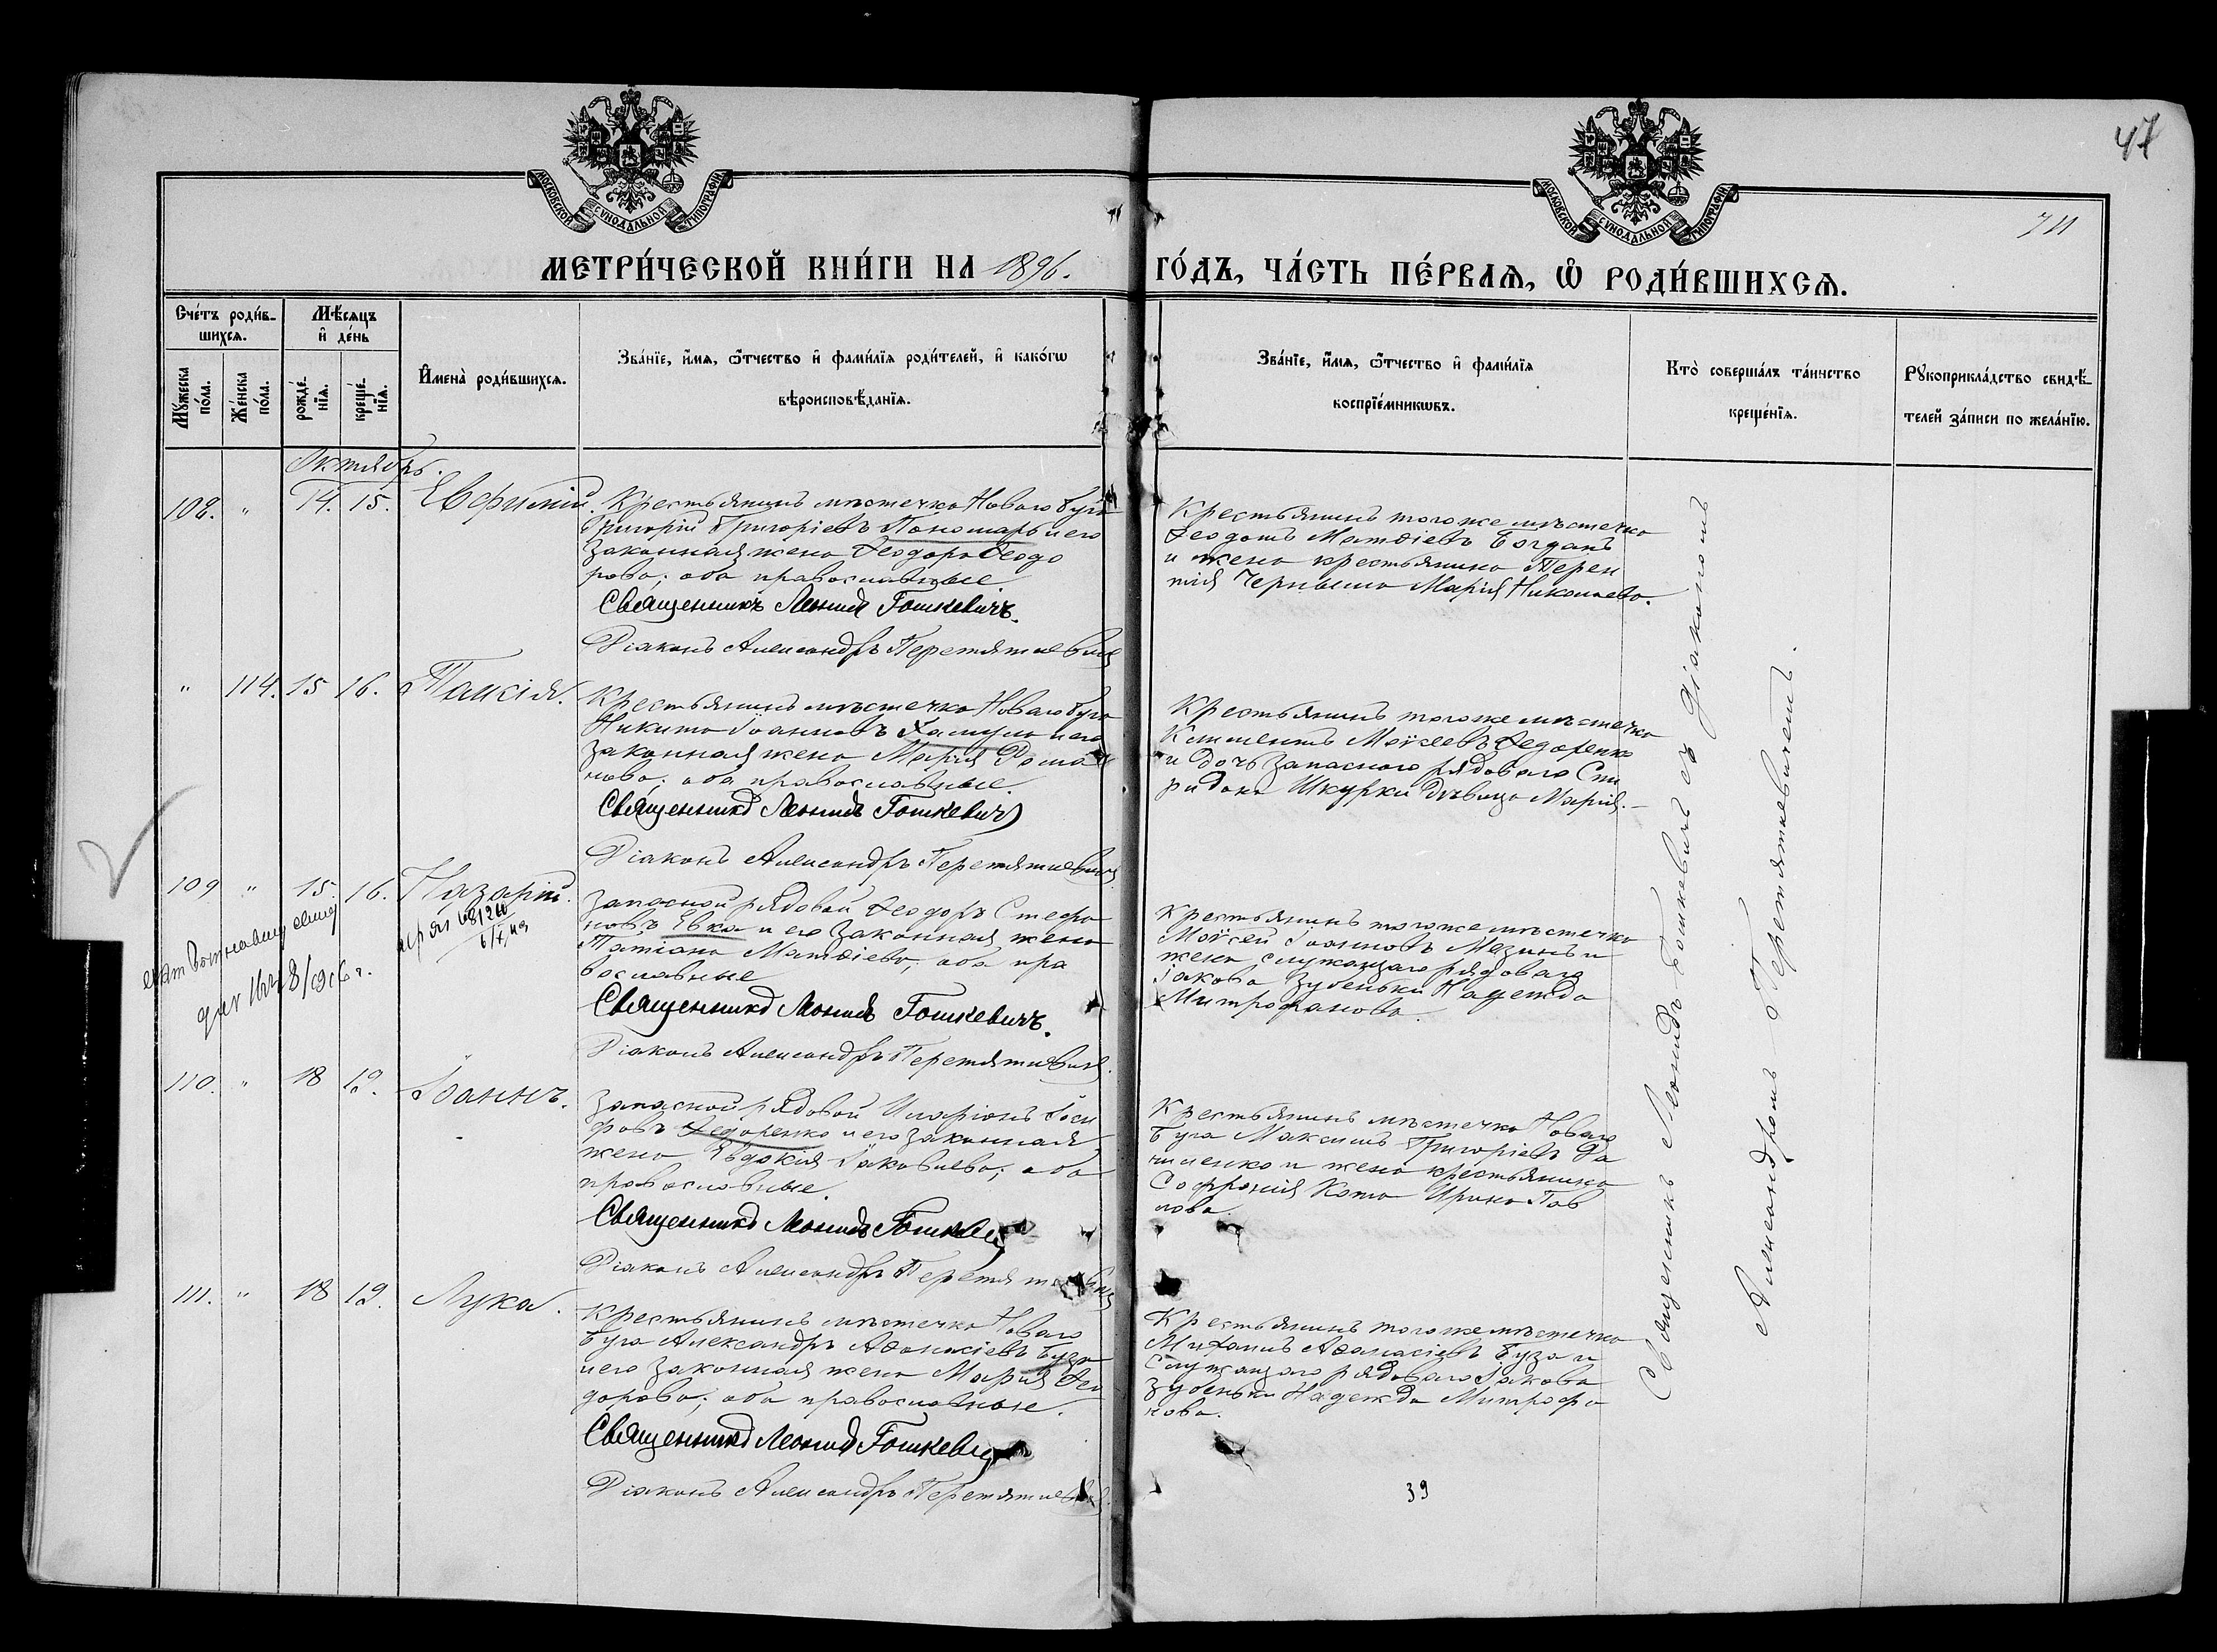 47
МОСКОВСКОЙ СѴНОДАЛЬНОЙ ТИПОГРАФІИ
МОСКОВСКОЙ СѴНОДАЛЬНОЙ ТИПОГРАФІИ
711
МЕТРИ́ЧЕСКОЙ КНИ́ГИ НА 1896. ГО́ДЪ, ЧА́СТЬ ПЕ́РВАѦ, Ѡ҆ РОДИ́ВШИХСѦ.
Сче́тъ роди́в-
шихсѧ.
Мꙋ́жеска по́ла.
Же́нска по́ла.
Мѣ́сѧцъ
и҆ де́нь
рожде́-
нїѧ.
креще́-
нїѧ.
И҆мена̀ роди́вшихсѧ.
Зва́нїе, и҆́мѧ, ѻ҆́тчество и҆ фами́лїѧ роди́телей, и҆ како́гѡ
вѣроисповѣ́данїѧ.
Зва́нїе, и҆́мѧ, ѻ҆́тчество и҆ фами́лїѧ
воспрїе́мникѡвъ.
Кто̀ соверша́лъ та́инство
креще́нїѧ.
Рꙋкоприкла́дство свидѣ́-
телей за́писи по жела́нїю.
Октябрь.
108. " 14. 15. Евфимій.
Крестьянинъ мѣстечка Новаго Буга
Григорій Григоріевъ Пономарь и его
законная жена Ѳеодора Ѳеодо
рова; оба православные
Священникъ Леонидъ Гошкевичъ.
Діаконъ Александръ Перетяткевичъ
Крестьянинъ того же мѣстечка
Ѳеодотъ Матѳіевъ Богданъ
и жена крестьянина Терен
тія Черныша Марія Николаева.
" 114. 15 16. Таисія.
Крестьянинъ мѣстечка Новаго Буга
Никита Іоанновъ Хамула и его
законная жена Марія Рома
нова; оба православные.
Священникъ Леонидъ Гошкевичъ
Діаконъ Александръ Перетяткевичъ
Крестьянинъ того же мѣстечка
Климентъ Моѵсеевъ Ѳедоренко
и дочь запаснаго рядоваго Спи
ридона Шкурки дѣвица Марія.
109 " 15 16. Назарій.
Запасной рядовой Ѳеодоръ Стефа
новъ Евка и его законная жена
Татіана Матѳіева; оба пра
вославные
Священникъ Леонидъ Гошкевичъ.
Діаконъ Александръ Перетяткевичъ.
Крестьянинъ того же мѣстечка
Моѵсей Іоанновъ Мазинъ и
жена служащаго рядоваго
Іакова Зубеньки Надежда
Митрофанова.
110. " 18 19. Іоаннъ.
Запасной рядовой Иларіонъ Іоси
фовъ Ѳедоренко и его законная
жена Евдокія Іаковлева; оба
православные.
Священникъ Леонидъ Гошкевичъ
Діаконъ Александръ Перетяткевичъ
Крестьянинъ мѣстечка Новаго
Буга Максимъ Григоріевъ Да
ниленко и жена крестьянина
Софронія Кота Ирина Пав
лова.
111. " 18 19. Лука.
Крестьянинъ мѣстечка Новаго
Буга Александръ Аѳанасіевъ Буза
и его законная жена Марія Ѳео
дорова; оба православные.
Священникъ Леонидъ Гошкевичъ
Діаконъ Александръ Перетяткевичъ.
Крестьянинъ того же мѣстечка
Михаилъ Аѳанасіевъ Буза и
служащаго рядоваго Іакова
Зубеньки Надежда Митрофа
нова.
Священникъ Леонидъ Гошкевичъ съ діакономъ
Александромъ Перетяткевичемъ.
39